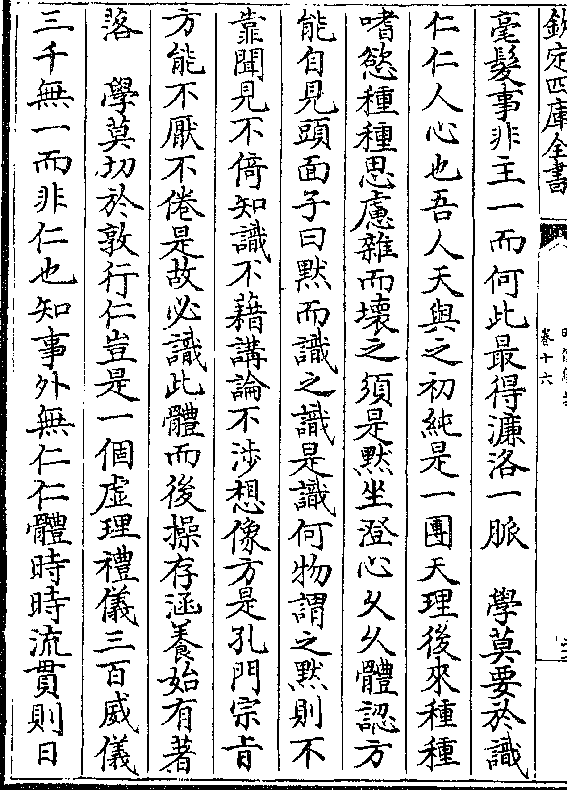 欽定四庫全書
卷十六
毫髮事非主一而何此最得濂洛一脈　學莫要於識
仁仁人心也吾人天與之初純是一團天理後來種種
嗜慾種種思慮雜而壞之須是黙坐澄心久久體認方
能自見頭面子曰黙而識之識是識何物謂之黙則不
靠聞見不倚知識不藉講論不涉想像方是孔門宗旨
方能不厭不倦是故必識此體而後操存涵養始有著
落　學莫切於敦行仁豈是一個虛理禮儀三百威儀
三千無一而非仁也知事外無仁仁體時時流貫則日